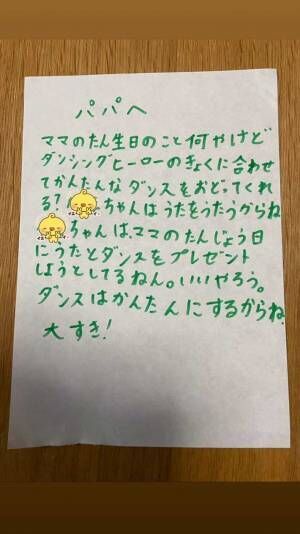 パパへ
ママのたん生日のこと何やけど
ダンシングヒーローのきょくに合わせ
てかんたんなダンスをおどってくれ
る?ちゃんはうたをうたうからね
ちゃんは、ママのたんじょう日
にうたとダンスをプレゼント
しようとしてるねん。いいやろう。
ダンスはかんたんにするからね
大すき!